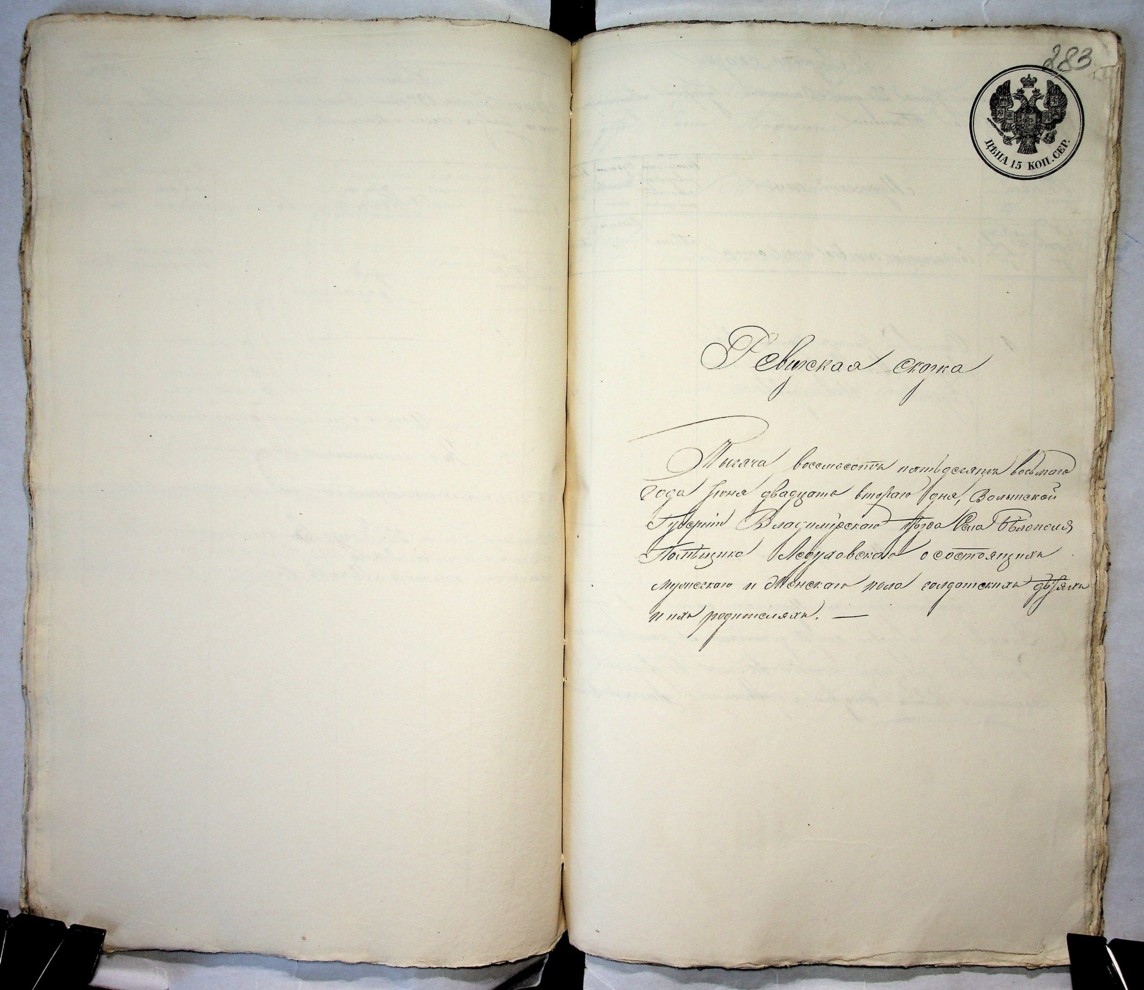 283
ЦѢНА 15 КОП. СЕР.
Ревизская сказка
Тысяча восемьсотъ пятьдесятъ восьмаго
года Іюня двадцать втораго дня, Волынской
Губерніи Владимірскаго уѣзда Села
Помѣщика о состоящихъ
мужескаго и женскаго пола солдатскихъ дѣтяхъ
и ихъ родителяхъ. —